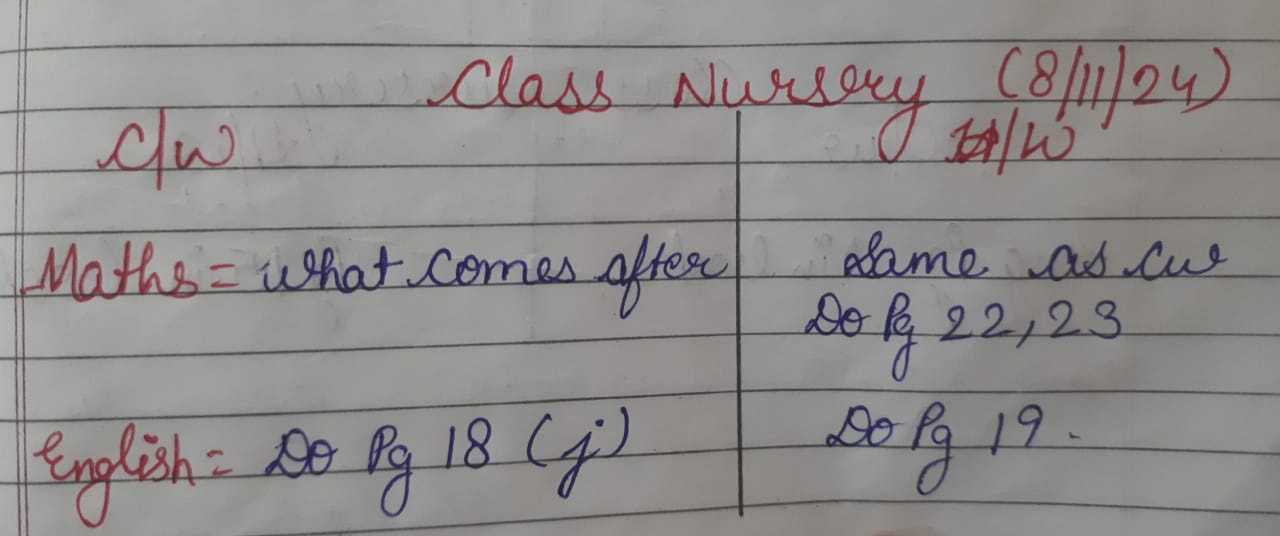 Class Nursery (8/11/24)
C/W H/W
Maths = what comes after same as cw
Do Pg 22, 23
English = Do Pg 18 (j) Do Pg 19.